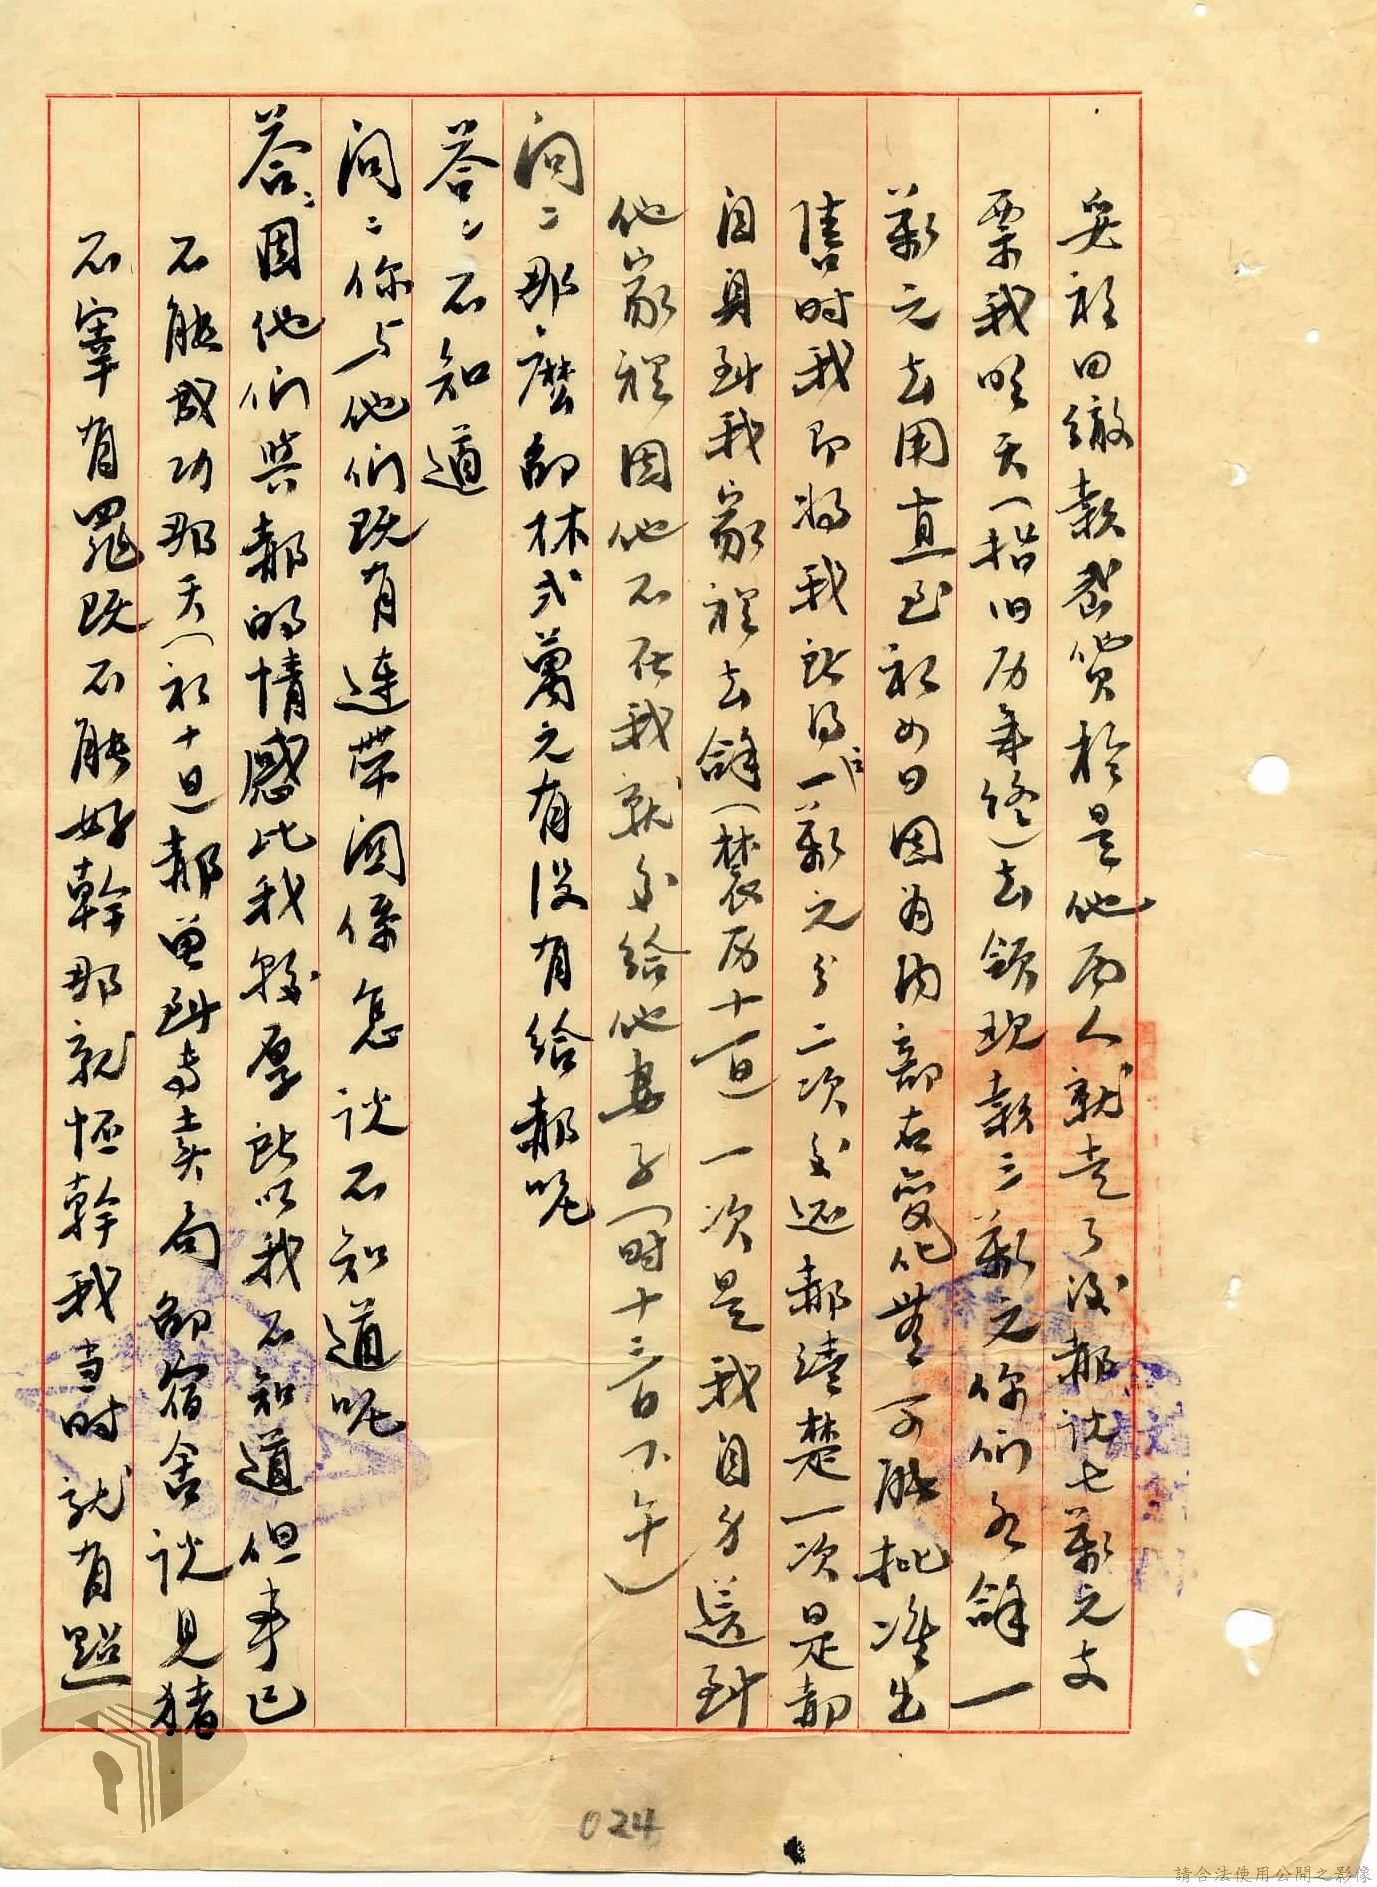 妥於田繳款岔貨於是他兩人就走了後郝說七萬元支
票我明天(指旧历年終)去領現款三萬元你們各餘一
萬元去用直至初四日因為內部在變化無可能批准出
售時我即將我所得一萬元分二次交還郝清楚一次是郝
自身到我家裡去餘(農历十一日)一次是我自身送到
他家裡因他不在我就交給他妻子(时十三日下午)
问:那麼邵林式萬元有沒有給郝呢
答:不知道
问:你与他們既有連帶関係怎說不知道呢
答:因他們與郝的情感比我較厚所以我不知道但事已
不能成功那天(初十日)郝曾到專賣局邵宿舍說見豬
不宰有罪既不能好幹那就恆幹我当时就有點
024
請合法使用公開之影像